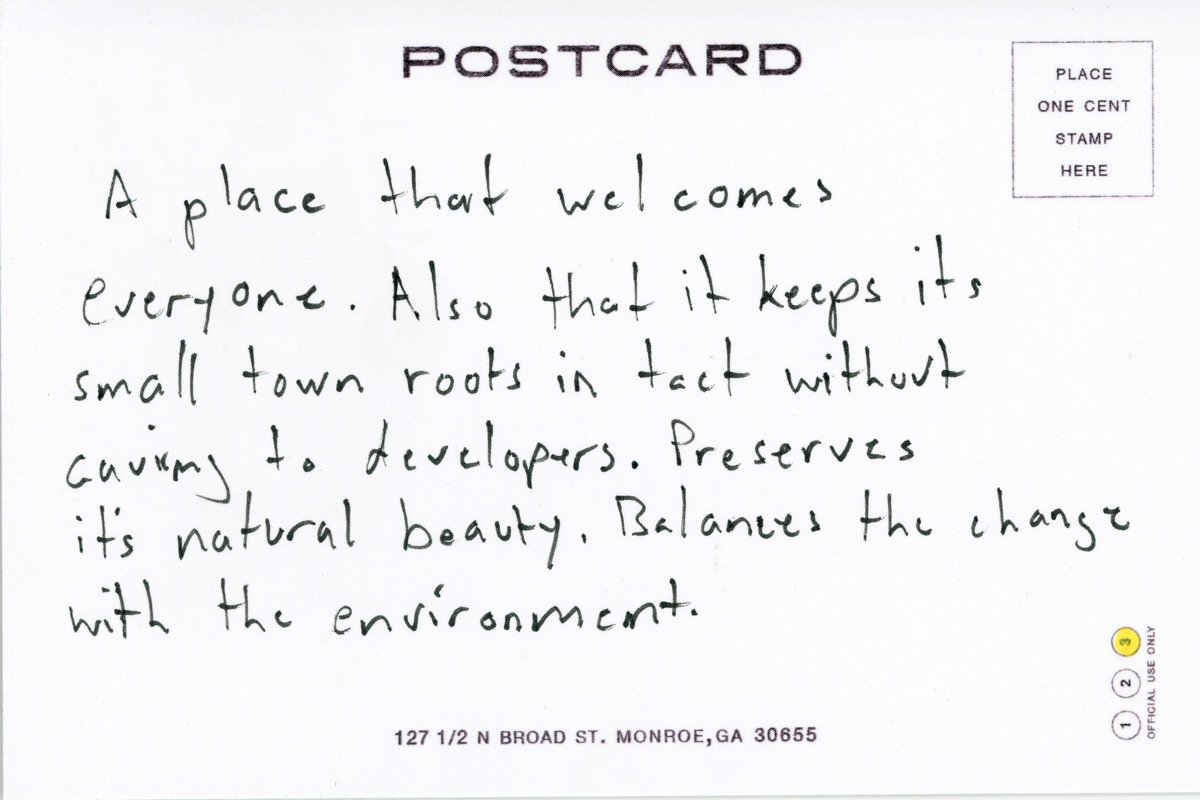 POSTCARD
PLACE
ONE CENT
STAMP
HERE
A place that welcomes
everyone. Also that it keeps its
small town roots in tact without
caving to developers. Preserves
it's natural beauty. Balances the change
with the environment.
1 2 3
OFFICIAL USE ONLY
127 1/2 N BROAD ST. MONROE, GA 30655